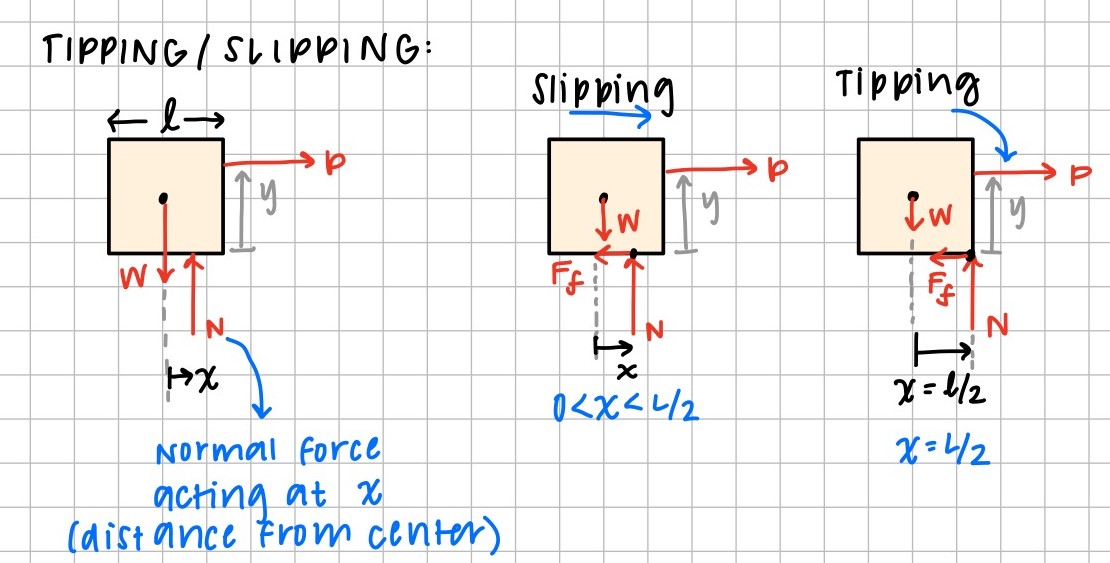 TIPPING/SLIPPING:
← l →
P
y
W
N
x
Normal force
acting at x
(distance from center)
Slipping
P
y
W
Ff
N
x
0<x<L/2
Tipping
P
y
W
Ff
N
x=l/2
x=L/2